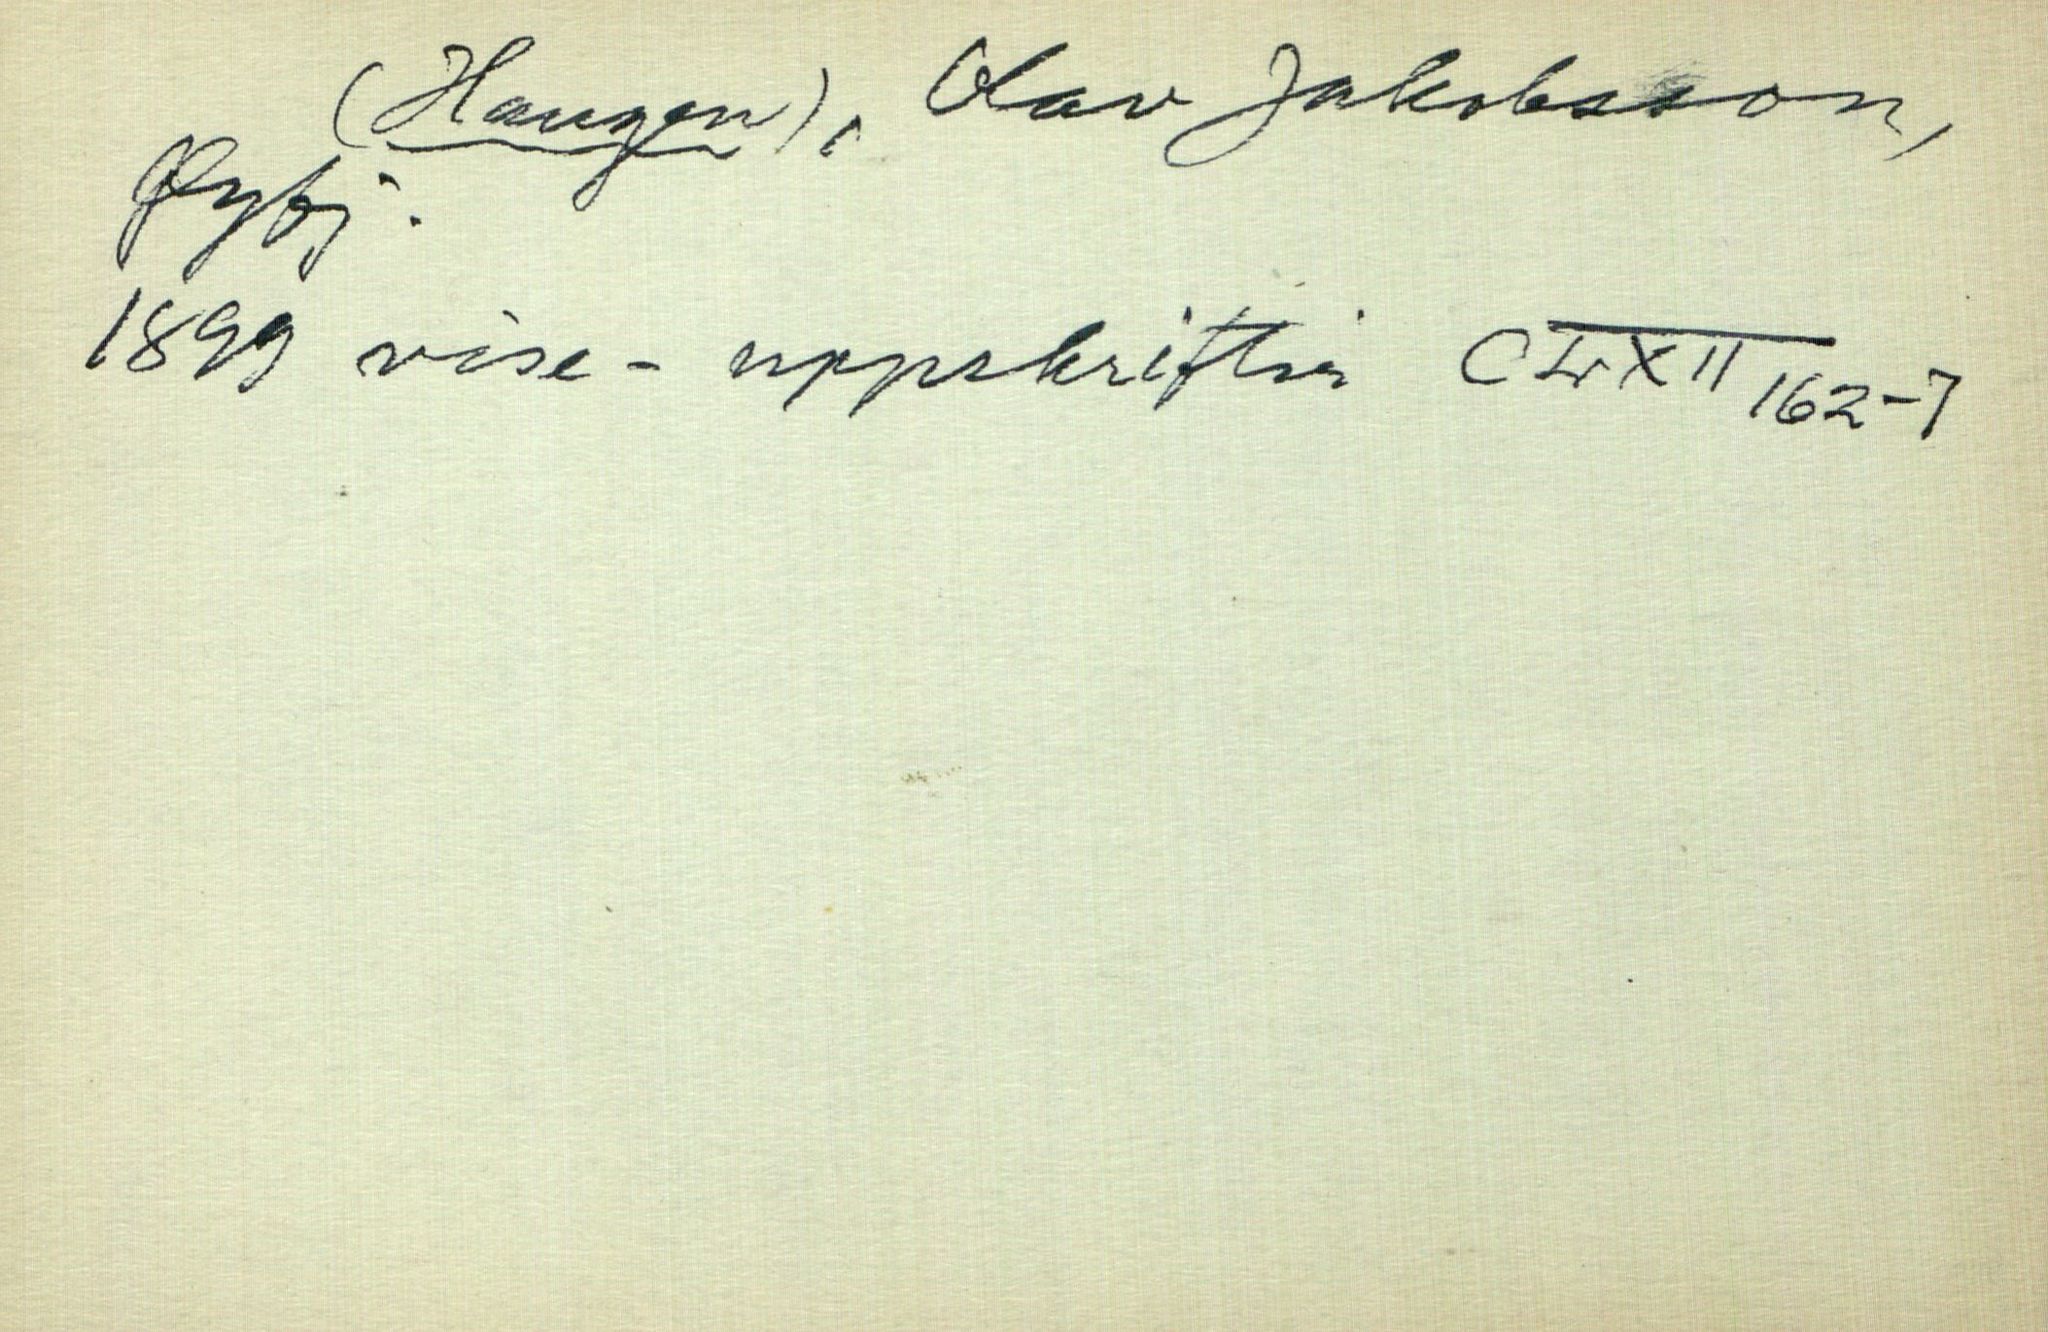 (Haugen), Olav Jakobsson,
Øyfj.
1899 vise-uppskriftir CLXXII 162-7